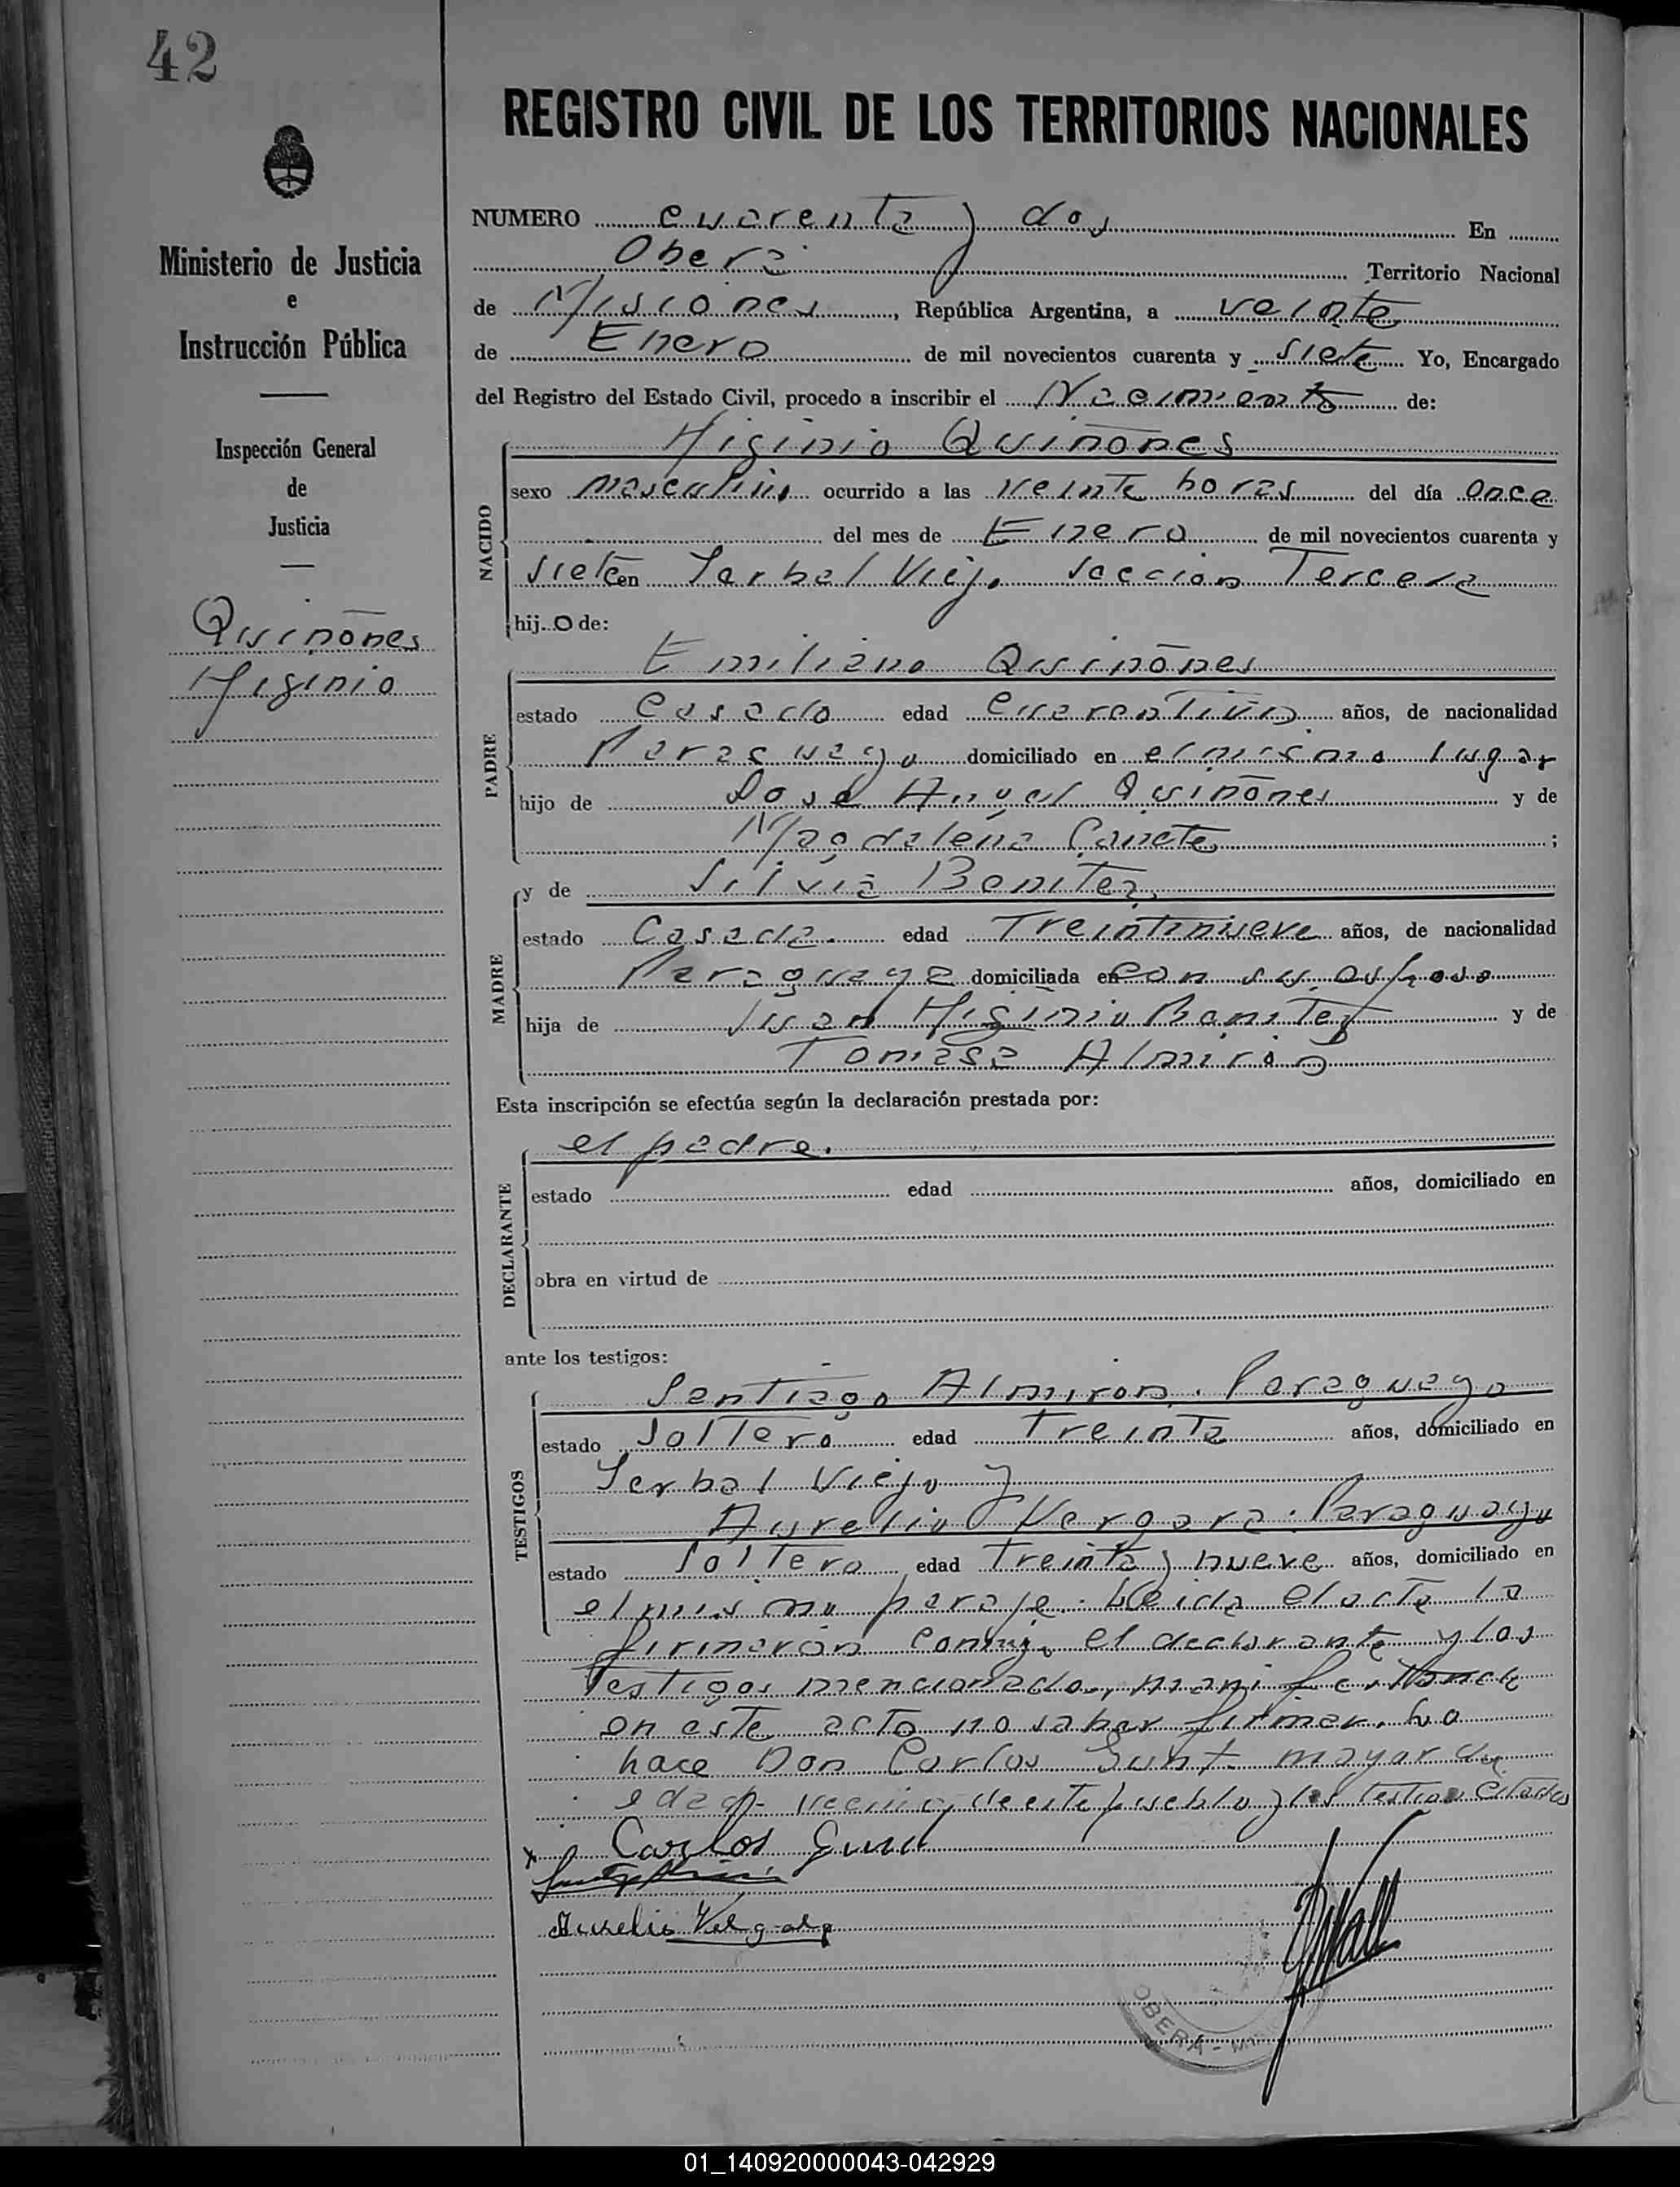 42
REGISTRO CIVIL DE LOS TERRITORIOS NACIONALES
Ministerio de Justicia
e
Instrucción Pública
Inspección General
de
Justicia
Quiñones
Higinio
NUMERO cuarenta y dos En
Oberá Territorio Nacional
de Misiones, República Argentina, a veinte
de Enero de mil novecientos cuarenta y siete Yo, Encargado
del Registro del Estado Civil, procedo a inscribir el Nacimiento de:
Higinio Quiñones
NACIDO
sexo masculino ocurrido a las veinte horas del día once
del mes de Enero de mil novecientos cuarenta y
siete en Yerbal Viejo seccion Tercera
hijo de:
Emiliano Quiñones
PADRE
estado Casado edad años, de nacionalidad
Paraguayo domiciliado en el mismo lugar
hijo de Quiñones y de
Magdalena Cañete;
MADRE
y de Silvia Benitez
estado Casada. edad Treintinueve años, de nacionalidad
Paraguaya domiciliada en con su esposo
hija de Juan Higinio Benitez y de
Tomasa Almirón
Esta inscripción se efectúa según la declaración prestada por:
DECLARANTE
el padre.
estado edad años, domiciliado en
obra en virtud de
ante los testigos:
TESTIGOS
Santiago Almiron. Paraguayo
estado Soltero edad Treinta años, domiciliado en
Yerbal Viejo y
Aurelio Vergara. Paraguayo
estado Soltero edad Treinta y nueve años, domiciliado en
el mismo paraje. Leida el acta la
firmarán conmigo el declarante y los
Testigos mencionados, manifestando
en este acto no saber firmar. Lo
hace Don Carlos mayor de
edad vecino de este pueblo y los testigos citados
x Carlos
Aurelio
OBERÁ -
01_140920000043-042929